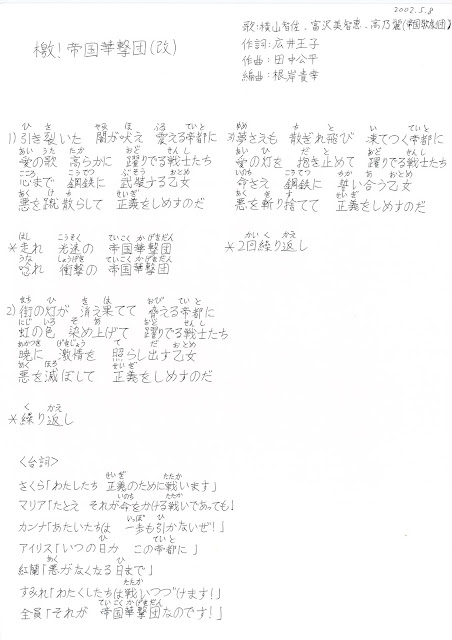 2002.5.8
歌:横山智佐、富沢美智恵、高乃麗(帝国歌劇団)
檄!帝国華撃団(改)
作詞:広井王子
作曲:田中公平
編曲:根岸貴幸
1)引き裂いた 闇が吠え 震える帝都に
愛の歌 高らかに 躍りでる戦士たち
心まで 鋼鉄に 武装する乙女
悪を蹴散らして 正義をしめすのだ
*走れ 光速の 帝国華撃団
唸れ 衝撃の 帝国華撃団
2)街の灯が 消え果てて 脅える帝都に
虹の色 染め上げて 躍りでる戦士たち
暁に 激情を 照らし出す乙女
悪を滅ぼして 正義をしめすのだ
*繰り返し
3)夢さえも 散ぎれ飛び 凍てつく帝都に
愛の灯を 抱き止めて 躍りでる戦士たち
命さえ 鋼鉄に 誓い合う乙女
悪を斬り捨てて 正義をしめすのだ
*2回繰り返し
<台詞>
さくら「わたしたち 正義のために戦います」
マリア「たとえ それが命をかける戦いであっても」
カンナ「あたいたちは 一歩も引かないぜ!」
アイリス「いつの日か この帝都に」
紅蘭「悪がなくなる日まで」
すみれ「わたくしたちは戦いつづけます!」
全員「それが 帝国華撃団なのです!」